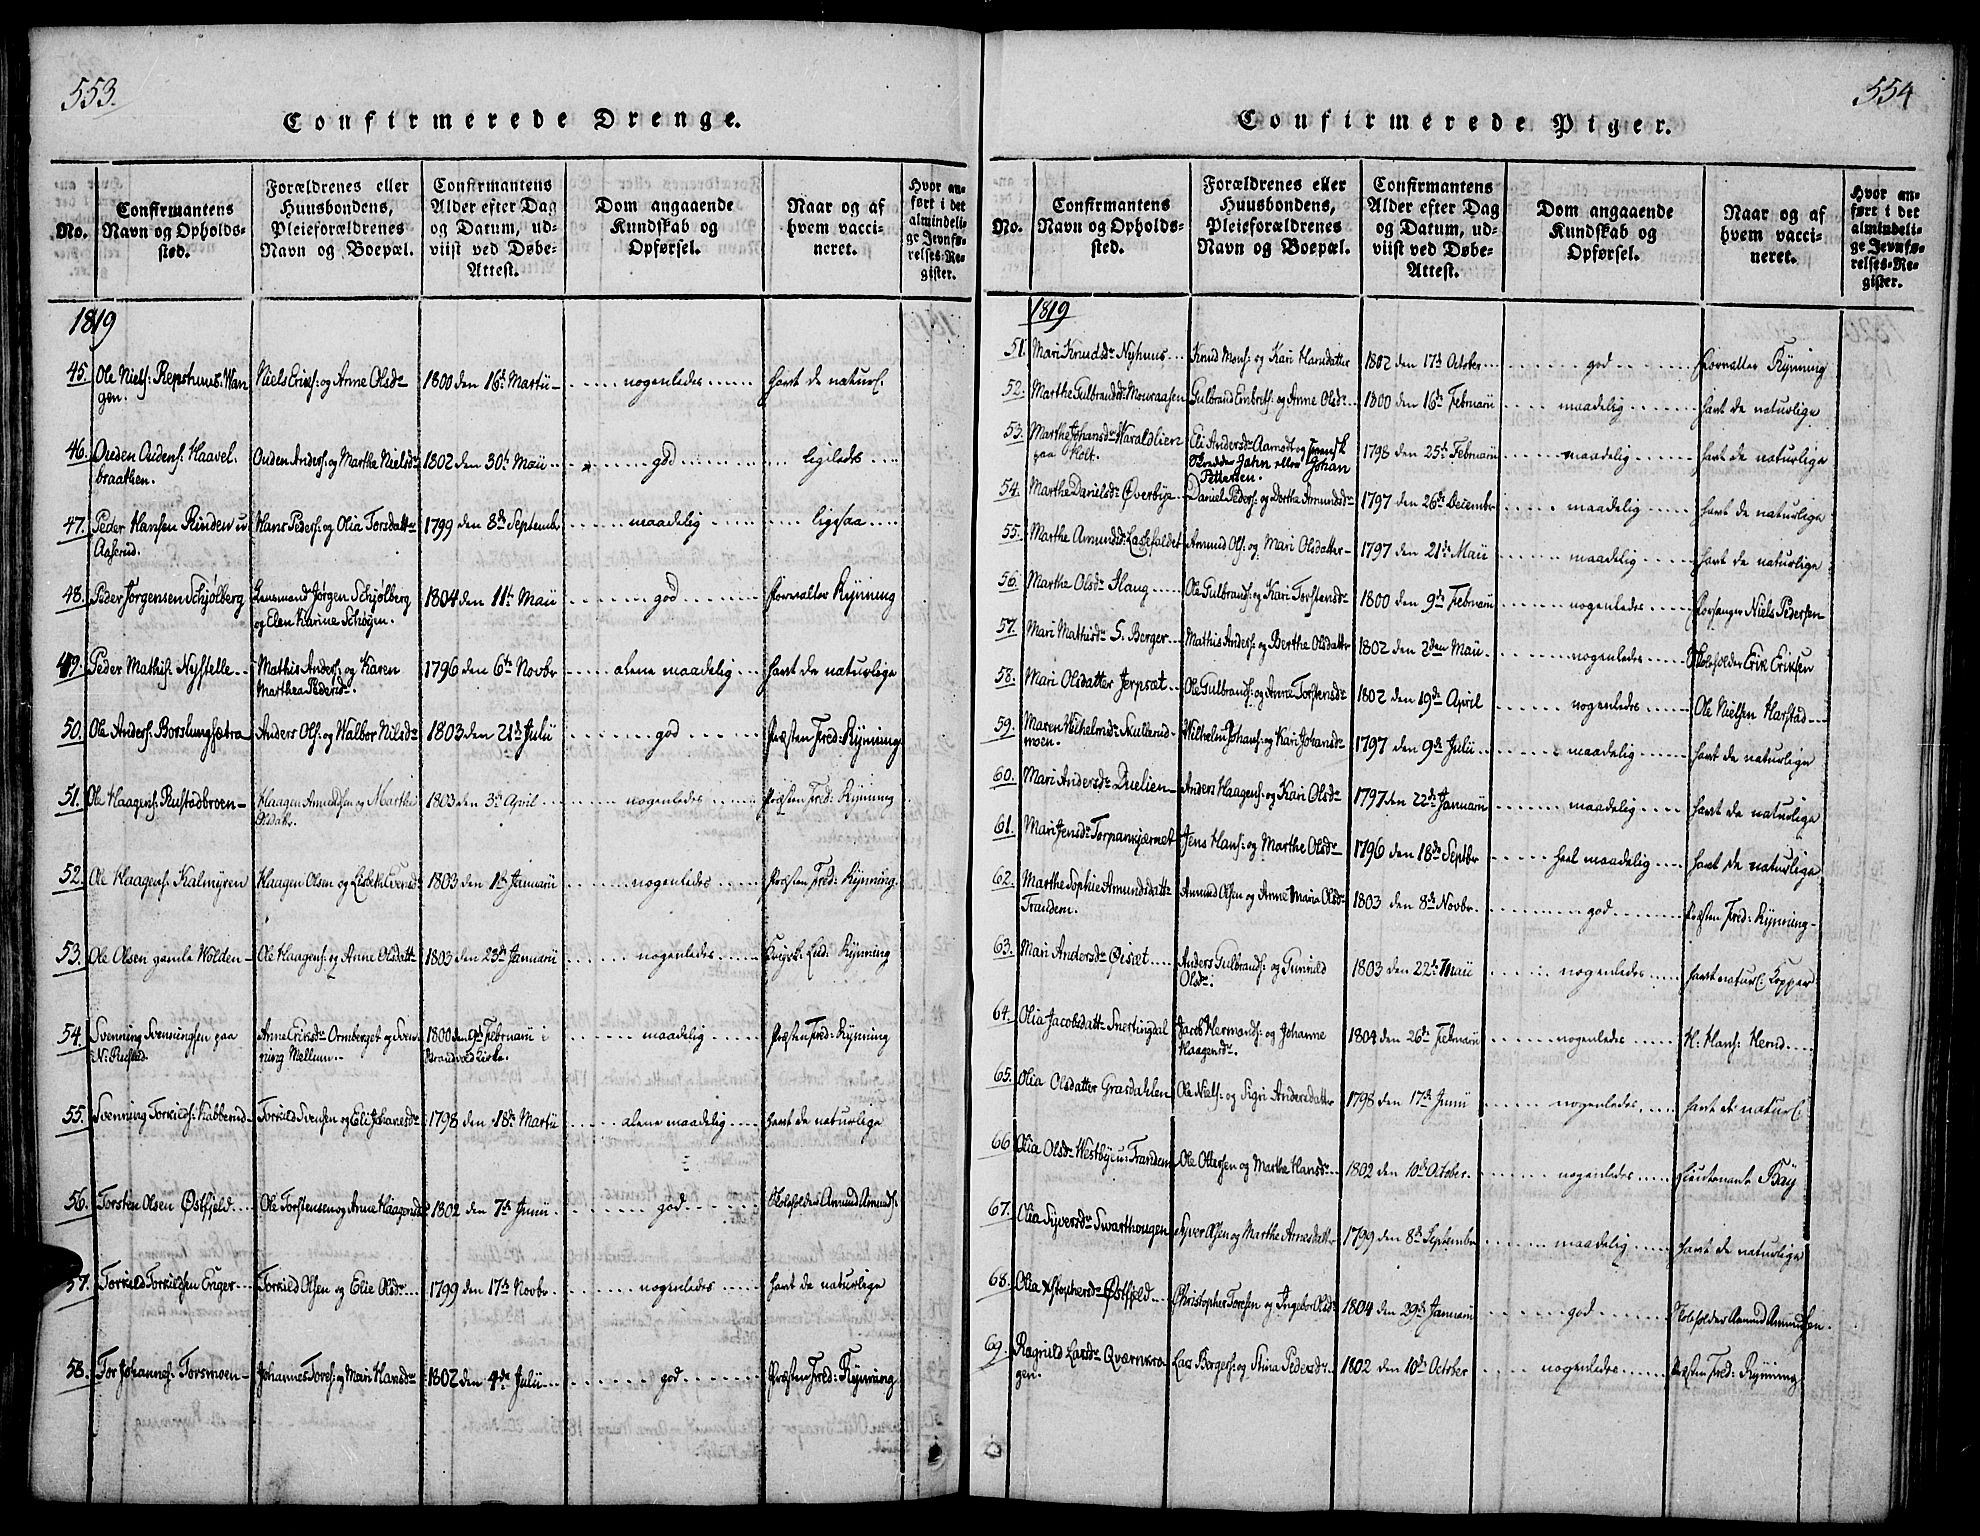 553.
Confirmerede Drenge.
No.
Confirmantens
Navn og Opholds-
sted.
Forældrenes eller
Huusbondens,
Pleieforældrenes
Navn og Boepæl.
Confirmantens
Alder efter Dag
og Datum, ud-
viist ved Døbe-
Attest.
Dom angaaende
Kundskab og
Opførsel.
Naar og af
hvem vacci-
neret.
Hvor an-
ført i det
almindeli-
ge Jevnfø-
relses-Re-
gister.
1819
45. Ole Niels: Repshuus: Wan Niels Eriks: og Anne Olsdr 1800 den 16de Martii nogenledes havt de naturl.
gen.
46. Ouden Oudens: Haavel. Ouden Anders: og Marthe Nielsdr 1802 den 30te Maii god ligeledes
braathen.
47. Peder Hansen Rinden u: Hans Peders: og Olia Torsdattr 1799 den 8de Septembr maadelig ligesaa
Aaserud.
48. Peder Jørgensen Schjølberg Lensmand Jørgen Schjølberg 1804 den 11te Maii god Forvalter Rynning
og Elen Karine Schøyen.
49. Peder Mathis: Nystelle Mathis Anders: og Karen 1796 den 6te Novbr alene maadelig havt de naturlige
Marthea Pedersdr.
50. Ole Anders: Borslungsætra Anders Ols: og Walbor Nilsdr 1803 den 21de Julii god Præsten Fred: Rynning
51. Ole Haagens: Rustadbroen Haagen Amundsen og Marthe 1803 den 3de April nogenledes Præsten Fred: Rynning
Olsdatr.
52. Ole Haagens: Kalmyren Haagen Olsen og Lisbet Evensdr 1803 den 1te Januarii nogenledes Præsten Fred: Rynning
53. Ole Olsen gamle Wolden Ole Haagens: og Anne Olsdattr 1803 den 23de Januarii nogenledes Lud: Rynning
54. Svenning Svenningsen paa Anne Eriksdr Ormberget og Sven 1800 den 9de Februarii i maadelig Præsten Fred: Rynning
N: Rustad. ning Mellum. Strandved Kirke.
55. Svenning Torkilds: Kabberud Torkild Svensen og Eli Johanesdr 1798 den 18de Martii alene maadelig havt de naturlige
56. Torsten Olsen Østfjeld Ole Torstensen og Anne Haagensdr 1802 den 7de Junii god Kloksolder Amund Amunds:
57. Torkild Torkildsen Enger Torkild Olsen og Elie Olsdr 1799 den 17de Novbr nogenledes havt de naturlige
58. Tor Johannes: Torsmoen Johannes Tores: og Mari Hansdr 1802 den 4de Julii god Præsten Fred: Rynning
554
Confirmerede Piger.
No.
Confirmantens
Navn og Opholds-
sted.
Forældrenes eller
Huusbondens,
Pleieforældrenes
Navn og Boepæl.
Confirmantens
Alder efter Dag
og Datum, ud-
viist ved Døbe-
Attest.
Dom angaaende
Kundskab og
Opførsel.
Naar og af
hvem vacci-
neret.
Hvor an-
ført i det
almindeli-
ge Jevnfø-
relses-Re-
gister.
1819
51. Mari Knudsdr Nyhuus Knud Mons: og Kari Hansdatter 1802 den 17de Octobr god Forvalter Rynning
52. Marthe Gulbrandsdr Mouraasen Gulbrand Embrets: og Anne Olsdr 1800 den 16de Februarii maadelig havt de naturlige
53. Marthe Johansdr Haraldlien Eli Andersdr Aamodt og svensk 1798 den 25de Februarii maadelig havt de naturlige
paa Holt. Skrædder Jahn eller Johan
Pettersen.
54. Marthe Danielsdr Øverbye Daniel Peders: og Dorthe Amundsdr 1797 den 26de Decembr maadelig havt de naturlige
55. Marthe Amundsdr Laskefaldet Amund Ols: og Mari Olsdatter 1797 den 21de Maii maadelig havt de naturlige
56. Marthe Olsdr Haug Ole Gulbrands: og Kari Torstensdr 1800 den 9de Februarii nogenledes Forsanger Niels Pedersen
57. Mari Mathisdr S. Berger Mathis Anders: og Berthe Olsdattr 1802 den 2den Maii nogenledes Erik Eriksen
58. Mari Olsdatter Jerpsæt Ole Gulbrands: og Anne Torstensdr 1802 den 19de April nogenledes Ole Nielsen Harstad
59. Maren Wilhelmsdr Skullerud- Wilhelm Johans: og Kari Johansdr 1797 den 9de Julii maadelig havt de naturlige
moen.
60. Mari Andersdr Duelien Anders Haagens: og Kari Olsdr 1797 den 22de Januarii maadelig havt de naturlige
61. Mari Jensdr Torpankjærnet Jens Hans: og Marthe Olsdr 1796 den 18de Septbr heel maadelig havt de naturlige
62. Marthe Sophie Amundsdattr Amund Olsen og Anne Maria Olsdr 1803 den 8de Novbr god Præsten Fred: Rynning
Trandem.
63. Mari Andersdr Øisæt Anders Gulbrands: og Gunnild 1803 den 22de Maii nogenledes havt naturl: Kopper
Olsdr.
64. Olia Jacobsdattr Snertingdal Jacob Hermands: og Johanne 1804 den 26de Februarii nogenledes H: Hans: Hernd
Haagensdr.
65. Olia Olsdatter Grasdahlen Ole Niels: og Sigri Andersdatter 1798 den 17de Junii nogenledes havt de naturl:
66 Olia Olsdr Westbye u: Trandem Ole Ottersen og Marthe Hansdr 1802 den 10de October nogenledes Lieutenante Bay
67. Olia Syversdr Swarthougen Syver Olsen og Marthe Arnesdatter 1799 den 8de Septembr maadelig havt de naturlige
68. Olia Xstophersdr Østfjeld Christopher Toresen og Ingebor Olsdr 1804 den 29de Januarii god Kloksolder Amund Amundsen
69. Ragnild Larsdr Qværnkro- Lars Bergers: og Stina Pedersdr 1802 den 10de October nogenledes Præsten Fred: Rynning
gen.